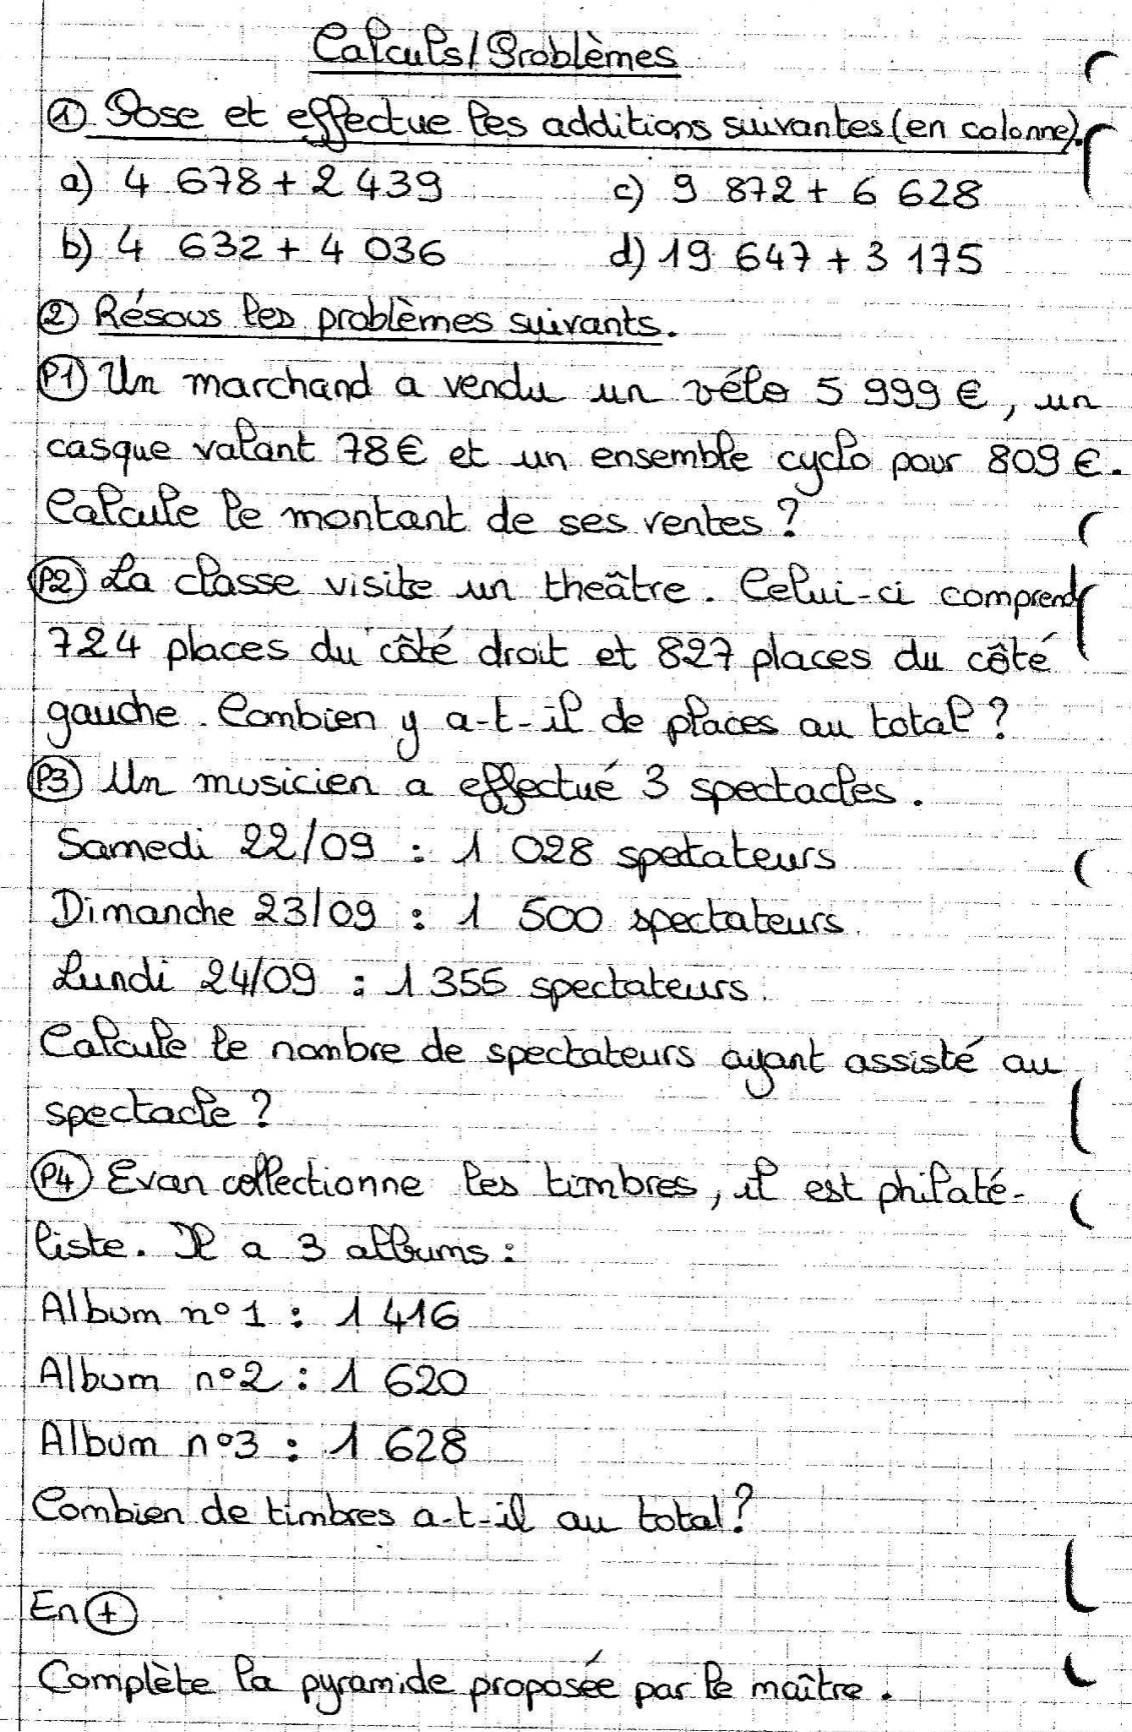 Calculs/Problèmes
① Pose et effectue les additions suivantes (en colonne).
a) 4 678 + 2 439 c) 9 872 + 6 628
b) 4 632 + 4 036 d) 19 647 + 3 175
② Résous les problèmes suivants.
P1 Un marchand a vendu un vélo 5 999 €, un
casque valant 78 € et un ensemble cyclo pour 809 €.
Calcule le montant de ses ventes ?
P2 La classe visite un theâtre. Celui-ci comprend
724 places du côté droit et 827 places du côté
gauche. Combien y a-t-il de places au total ?
P3 Un musicien a effectué 3 spectacles.
Samedi 22/09 : 1 028 spetateurs
Dimanche 23/09 : 1 500 spectateurs.
Lundi 24/09 : 1 355 spectateurs.
Calcule le nombre de spectateurs ayant assisté au
spectacle ?
P4 Evan collectionne les timbres, il est philaté-
liste. Il a 3 albums :
Album n°1 : 1 416
Album n°2 : 1 620
Album n°3 : 1 628
Combien de timbres a-t-il au total ?
En +
Complète la pyramide proposée par le maître.